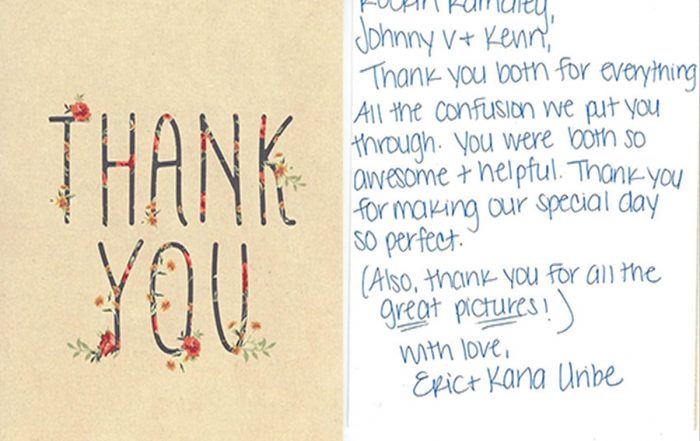 THANK
YOU
Johnny V + Kenn,
Thank you both for everything
All the confusion we put you
through. You were both so
awesome + helpful. Thank you
for making our special day
so perfect.
(Also, thank you for all the
great pictures!)
with love,
Eric + Kana Uribe